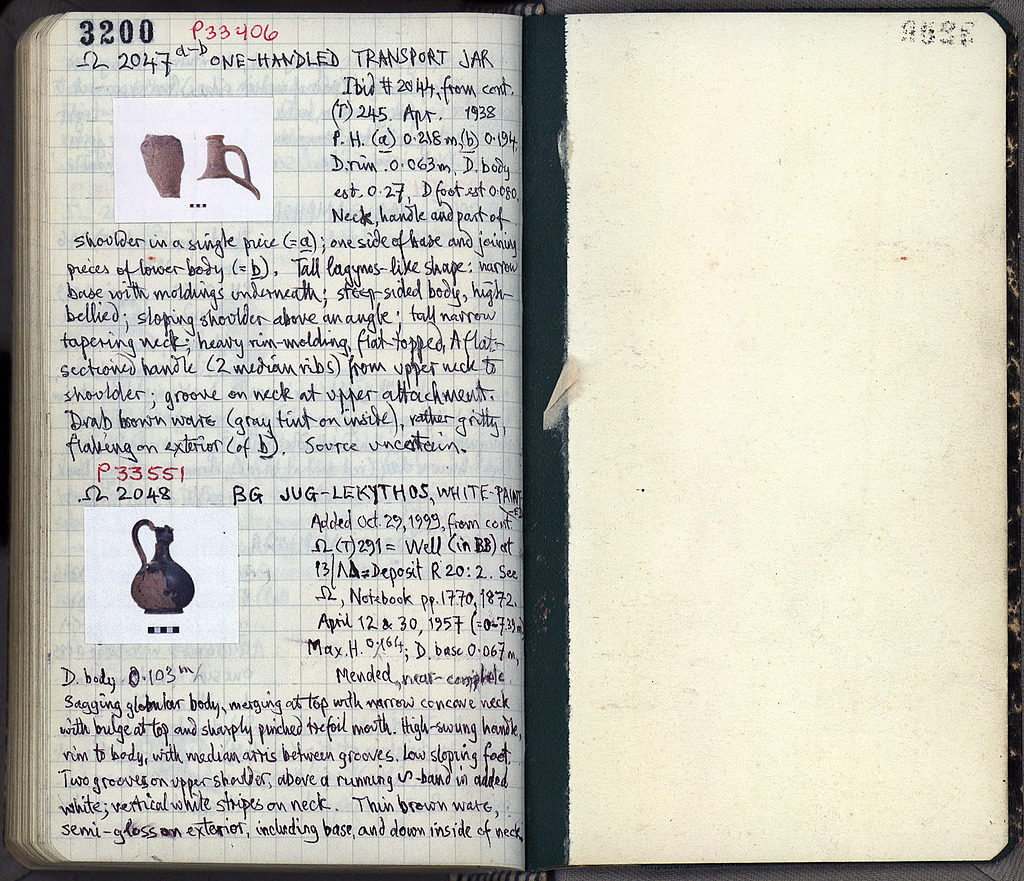 3200 P33406
Ω 2047 a-b ONE-HANDLED TRANSPORT JAR
Ibid # 2044, from cont.
(T) 245. Apr. 1938
P. H. (a) 0.218 m, (b) 0.194,
D. rim. 0.063 m, D. body
est. 0.27, D foot est 0.080.
Neck, handle and part of
shoulder in a single piece (=a); one side of base and joining
pieces of lower body (=b). Tall lagynos-like shape: narrow
base with moldings underneath; steep-sided body, high-
bellied; sloping shoulder above an angle; tall narrow
tapering neck; heavy rim-molding, flat-topped, A flat-
sectioned handle (2 median ribs) from upper neck to
shoulder; groove on neck at upper attachment.
Drab brown ware (gray tint on inside), rather gritty,
flaking on exterior (of b). Source uncertain.
P33551
Ω 2048 BG JUG-LEKYTHOS, WHITE-PAINT
Added Oct. 29, 1999, from cont
Ω (T) 291 = Well (in BB) at
= Deposit R 20:2. See
Ω, Notebook pp. 1770, 1872.
April 12 & 30, 1957
Max. H. 0.164; D. base 0.067 m,
D. body 0.103 m Mended, near-complete.
Sagging globular body, merging at top with narrow concave neck
with bulge at top and sharply pinched trefoil mouth. High-swung handle,
rim to body, with median arris between grooves. Low sloping foot.
Two grooves on upper shoulder, above a running S-band in added
white; vertical white stripes on neck. Thin brown ware,
semi-gloss on exterior, including base, and down inside of neck.